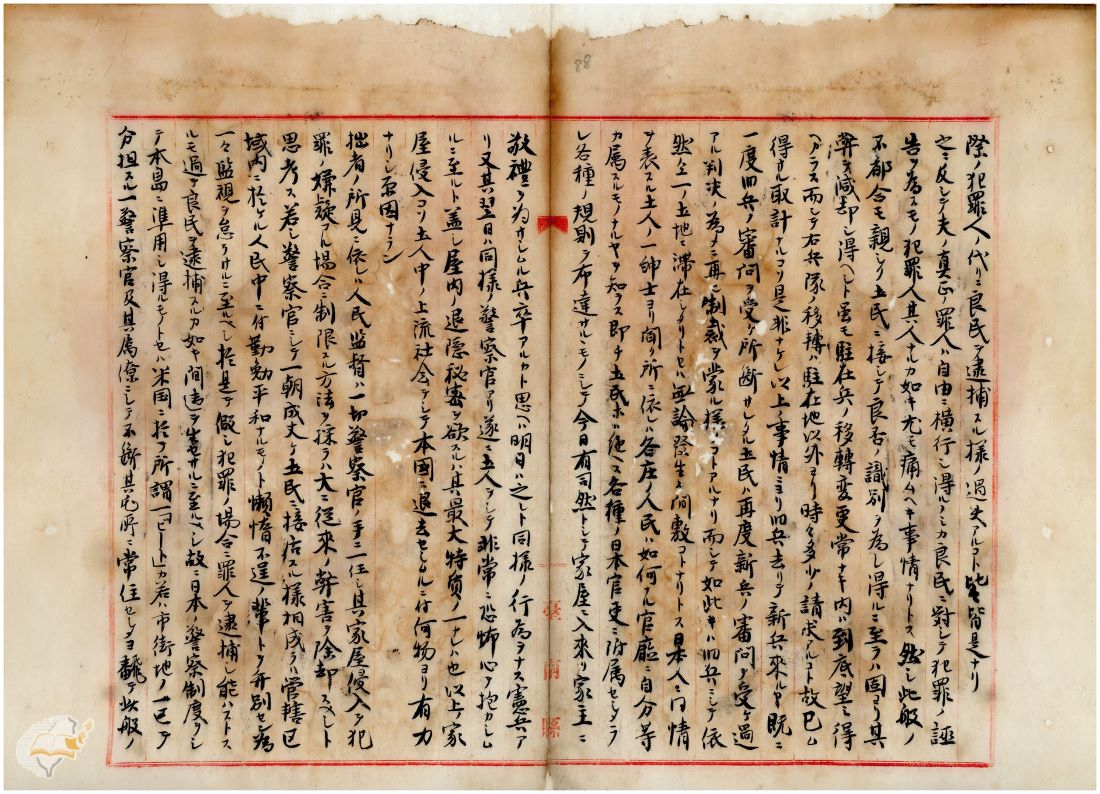 際ノ犯罪人ノ代リニ良民ヲ逮捕スル様ノ過失アルコト皆是ナリ
之ニ反シテ夫ノ真正ノ罪人ハ自由ニ横行シ得ルノミカ良民ニ對シテ犯罪ノ誣
告ヲ為スモノ犯罪人其人ナルカ如キ尤モ痛ムヘキ事情ナリトス然シ此般ノ
不都合モ親シク土民ニ接シテ良否ノ識別ヲ為シ得ルニ至ラハ固ヨリ其
弊ヲ減却シ得ヘシト雖モ駐在兵ノ移轉変更常ナキ内ハ到底望ミ得
ヘアラス而シテ右兵隊ノ移轉ハ駐在地以外ヨリ時々多少ノ請求アルコト故已ム
得サル取計ナルコリ是非ナケレ以上ノ事情ニヨリ旧兵去リテ新兵來ルヤ既ニ
一度旧兵ノ審問ヲ受ケ所断サレタル土民ハ再度新兵ノ審問ヲ受ケ過
アル判决ノ為メニ再ヒ制裁ヲ蒙ル様ノコトアルナリ而シテ如此キハ旧兵ニシテ依
然仝一ノ土地ニ滞在シタリトセハ無論發生ノ間敷コトナリトス日本人ニ同情
ヲ表スル土人ノ一紳士ヨリ聞リ所ニ依レハ各庄人民ハ如何ナル官廳ニ自分等
カ属スルモノナルヤヲ知ラス即チ土民ホ従ス各種ノ日本官吏ニ附属セシメラ
レ各種ノ規則ヲ布達サルヽモノニシテ今日有司然トシテ家屋ニ入來リ家主ニ
敬禮ヲ為サシムル兵卒アルカト思ハ明日ハ之レト同様ノ行為ヲナス憲兵ア
リ又其翌日ハ同様ノ警察官アリ遂ニ土人ヲシテ非常ニ恐怖心ヲ抱カシム
ルニ至ルト盖シ屋内ノ退隠秘密ヲ欲スルハ其最大特質ノ一ナレハ也以上ノ家
屋侵入コソ土人中ノ上流社会ヲシテ本國ニ退去セシメルニ付何物ヨリ有力
ナリシ原因ナラン
拙者ノ所見ニ依レハ人民監督ハ一切警察官ノ手ニ一任シ其家屋侵入ヲ犯
罪ノ嫌疑アル場合ニ制限スル方法ヲ採ラハ大ニ従來ノ弊害ヲ除却スヘシト
思考ス若シ警察官ニシテ一朝成丈ケ土民ニ接近スル様相成ラハ管轄区
域内ニ於ケル人民中ニ付勤勉平和アルモノト懶惰不逞ノ輩トヲ弁別セシ為
一々監視ヲ怠ラサルニ至ルヘシ於是乎假シ犯罪ノ場合ニ罪人ヲ逮捕シ能ハストス
ルモ過テ良民ヲ逮捕スルカ如キ間違ヲ生セサルニ至ルヘシ故ニ日本ノ警察制度ヲシ
テ本島ニ準用シ得ルモノトセハ米国ニ於テ所謂一「ビート」カ若ハ市街地ノ一区ヲ
分担スル一警察官及其属僚ニシテ不断其屯所ニ常住セシメヨ飜テ此般ノ
臺南縣
88